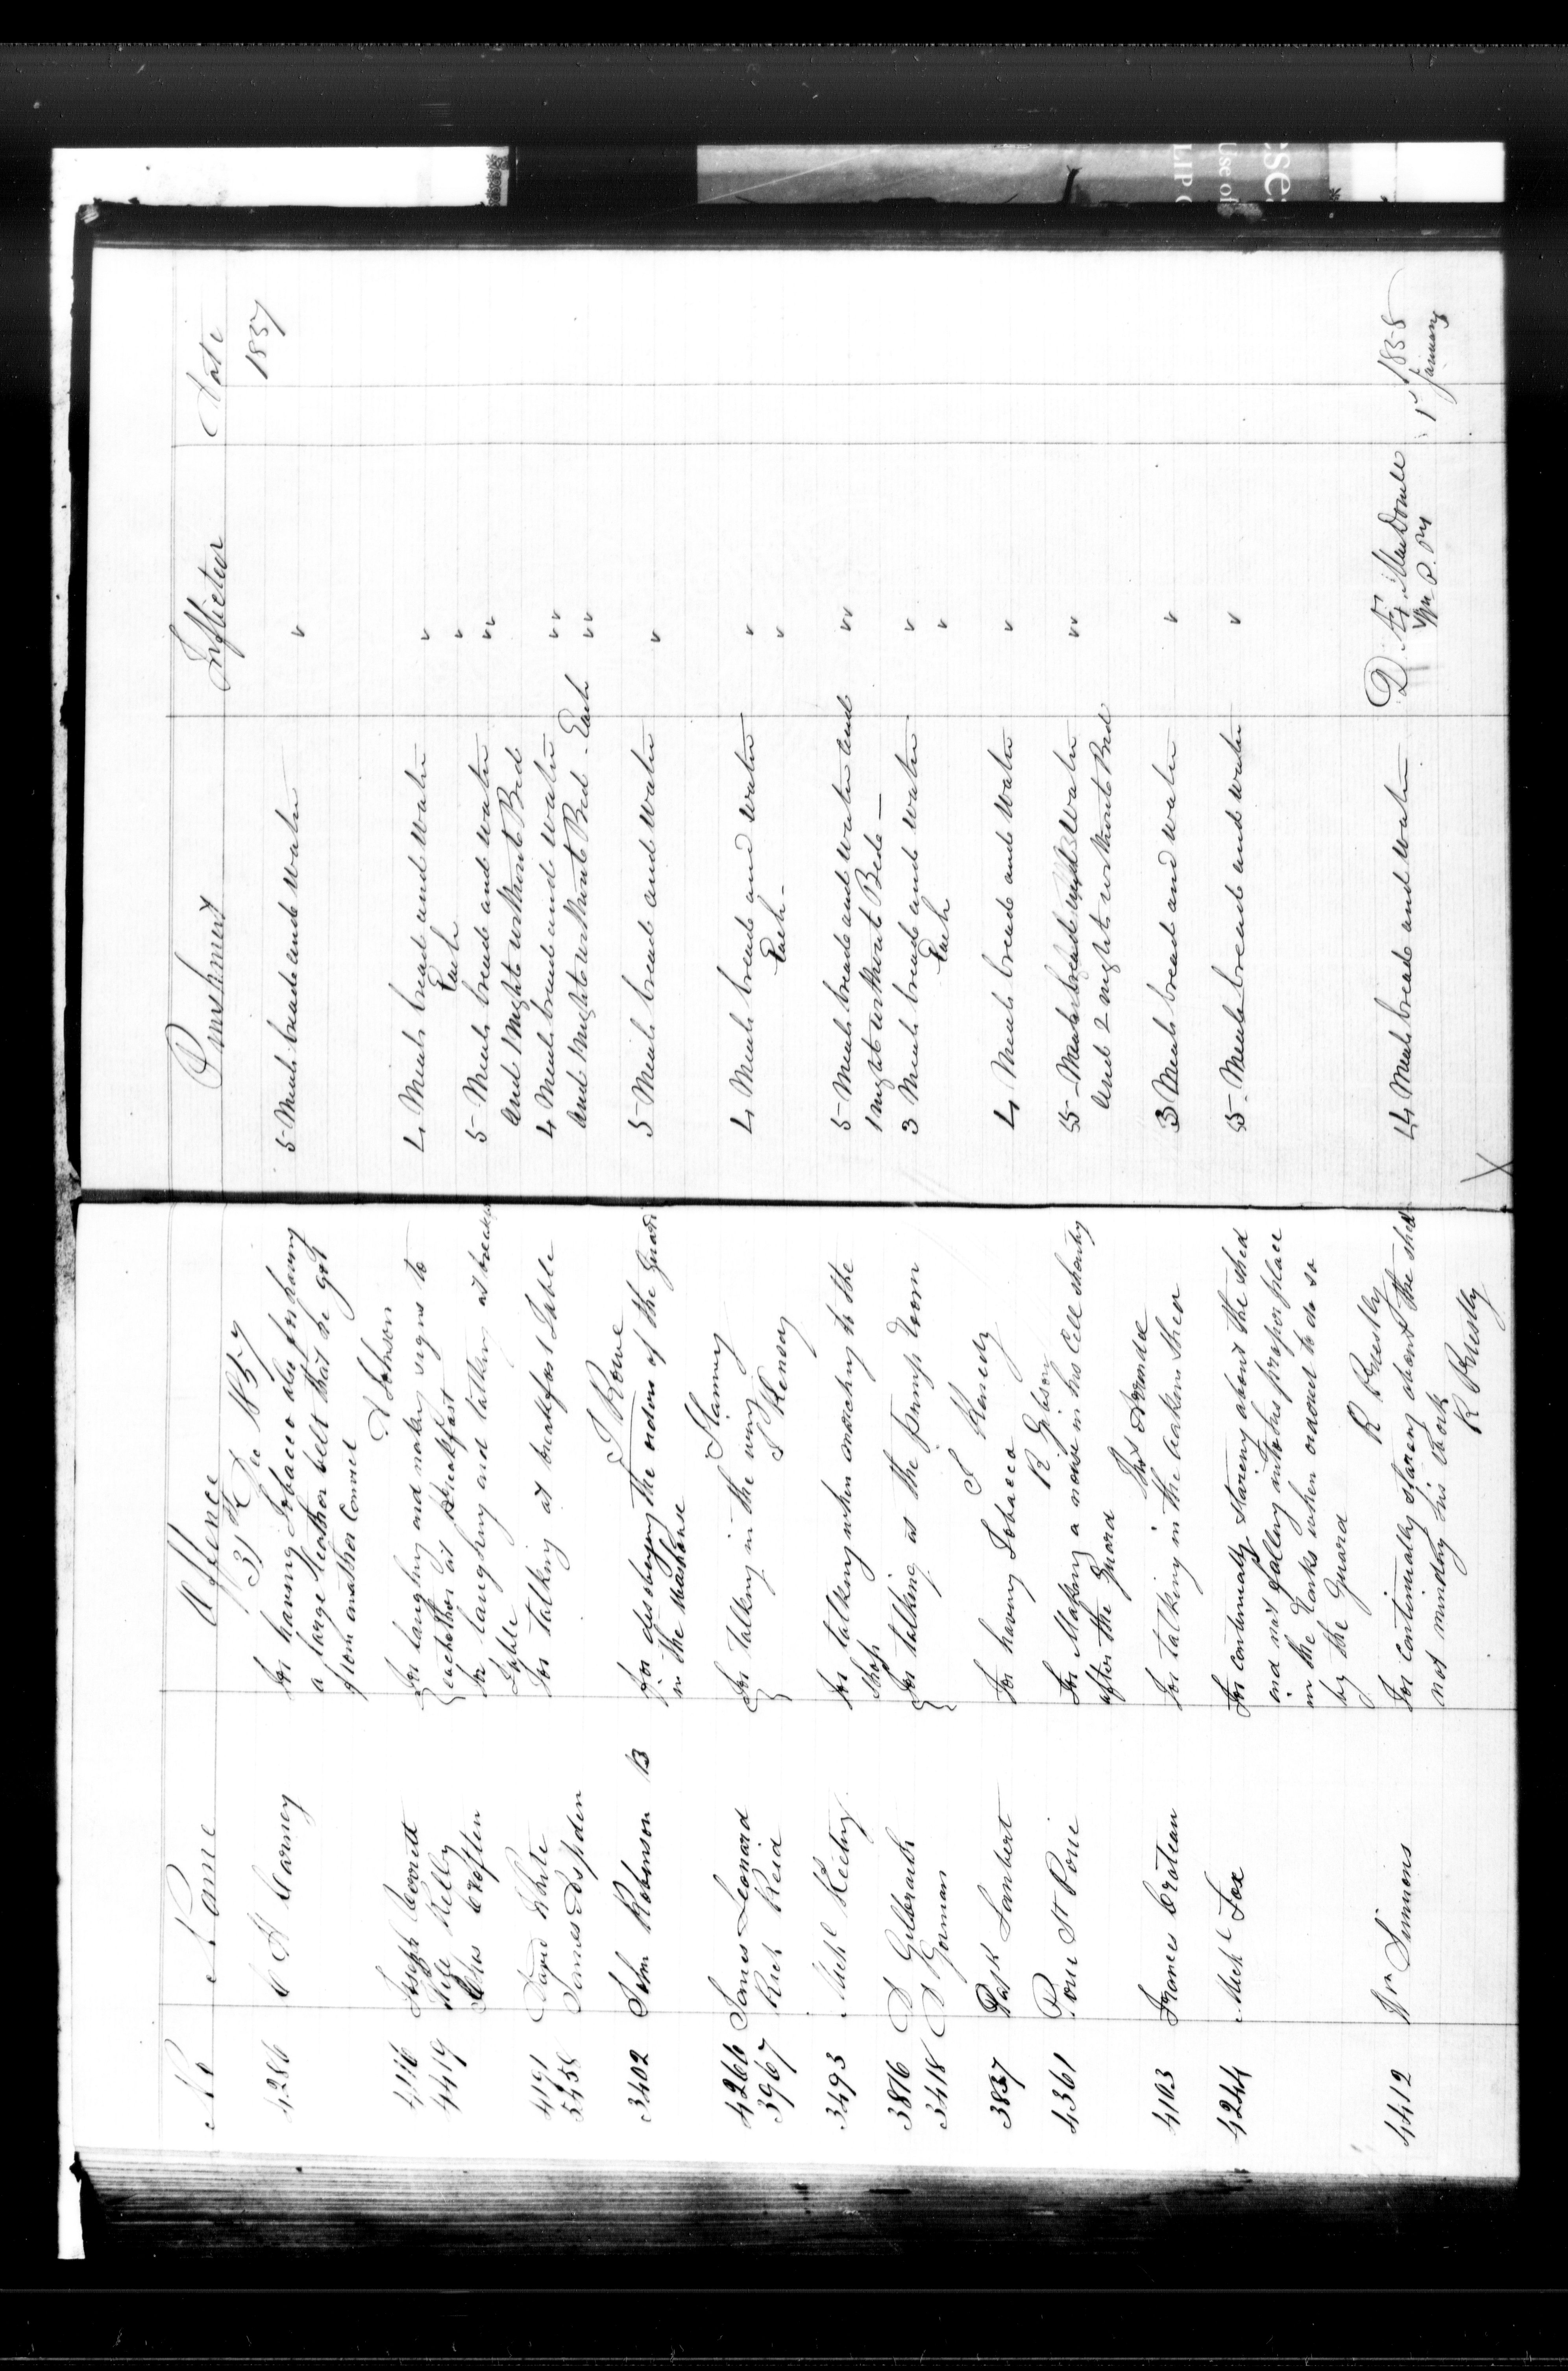 No Name Offence Punishment Inflicted Date
31st Dec 1857 1857
4286 C H Carney For having Tobacco also for having 5 Meals bread and water "
a large leather belt that he got
from another Convict
A Johnson
4116 Joseph Corrett For laughing and making signs to 4 Meals bread and water "
4419 Kelly eachother at Breakfast Each "
Chas Croften For laughing and talking at breakfast 5 Meals bread and water " "
Table and 1 night without Bed
419 David White For talking at breakfast Table 4 Meals bread and water " "
5458 James Aspden and 1 night without Bed - Each " "
T Rowe
3402 John Robinson B For disobeying the orders of the Guard 5 Meals bread and water "
in the washouse
Stanney
4266 James Leonard For talking in the wing 4 Meals bread and water "
3967 Rich Reid S Kenedy Each - "
3493 Michl Keeting For talking when marching to the 5 Meals bread and water and " "
Shop 1 night without Bed -
3876 D Gulbranth For talking at the pump Room 3 Meals bread and water "
3418 D Gorman Each "
S Kenedy
3837 Patk Lambert For having Tobacco 4 Meals bread and water "
R Gibson
4361 Poue St Poue For Making a noise in his Cell shouting 5 Meals bread and Water " "
after the Guard and 2 nights without Bed
4103 Frances Crotean For talking in the broken shed 3 Meals bread and water "
4244 Michl Fox For continually stareing about the shed 5 Meals bread and water "
and not falling into his proper place
in the ranks when ordered to do so
by the Guard
R Priestly
4412 Wm Simmons For Continually staring about the shed 4 Meals bread and water D. Æ. MacDonell 1858
not minding his work 1st January
R Priestly
esea
Use of
LIP